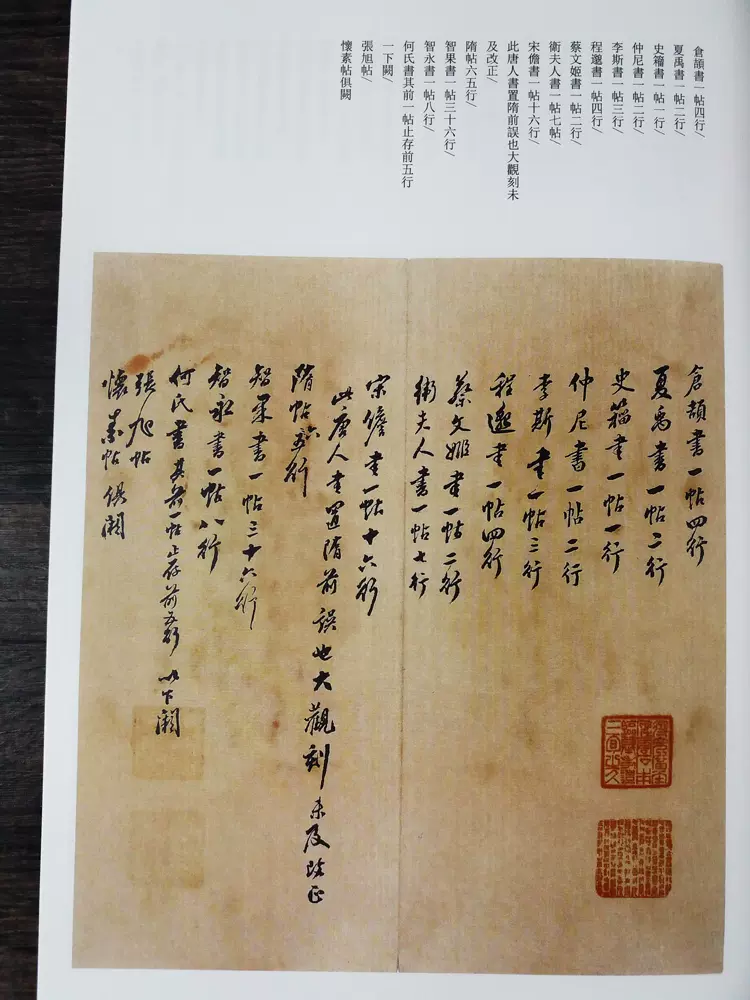 倉頡書一帖四行/
夏禹書一帖二行/
史籀書一帖一行/
仲尼書一帖二行/
李斯書一帖三行/
程邈書一帖四行/
蔡文姬書一帖二行/
衛夫人書一帖七帖/
宋儋書一帖十六行/
此唐人書置隋前誤也大觀刻未
及改正/
隋帖六五行/
智果書一帖三十六行/
智永書一帖八行/
何氏書其前一帖止存前五行
一下闕/
張旭帖/
懷素帖俱闕
倉頡書一帖四行
夏禹書一帖二行
史籀書一帖一行
仲尼書一帖二行
李斯書一帖三行
程邈書一帖四行
蔡文姬書一帖二行
衛夫人書一帖七行
宋儋書一帖十六行
此唐人書置隋前誤也大觀刻未及改正
隋帖六五行
智果書一帖三十六行
智永書一帖八行
何氏書其前一帖止存前五行以下闕
張旭帖
懷素帖俱闕